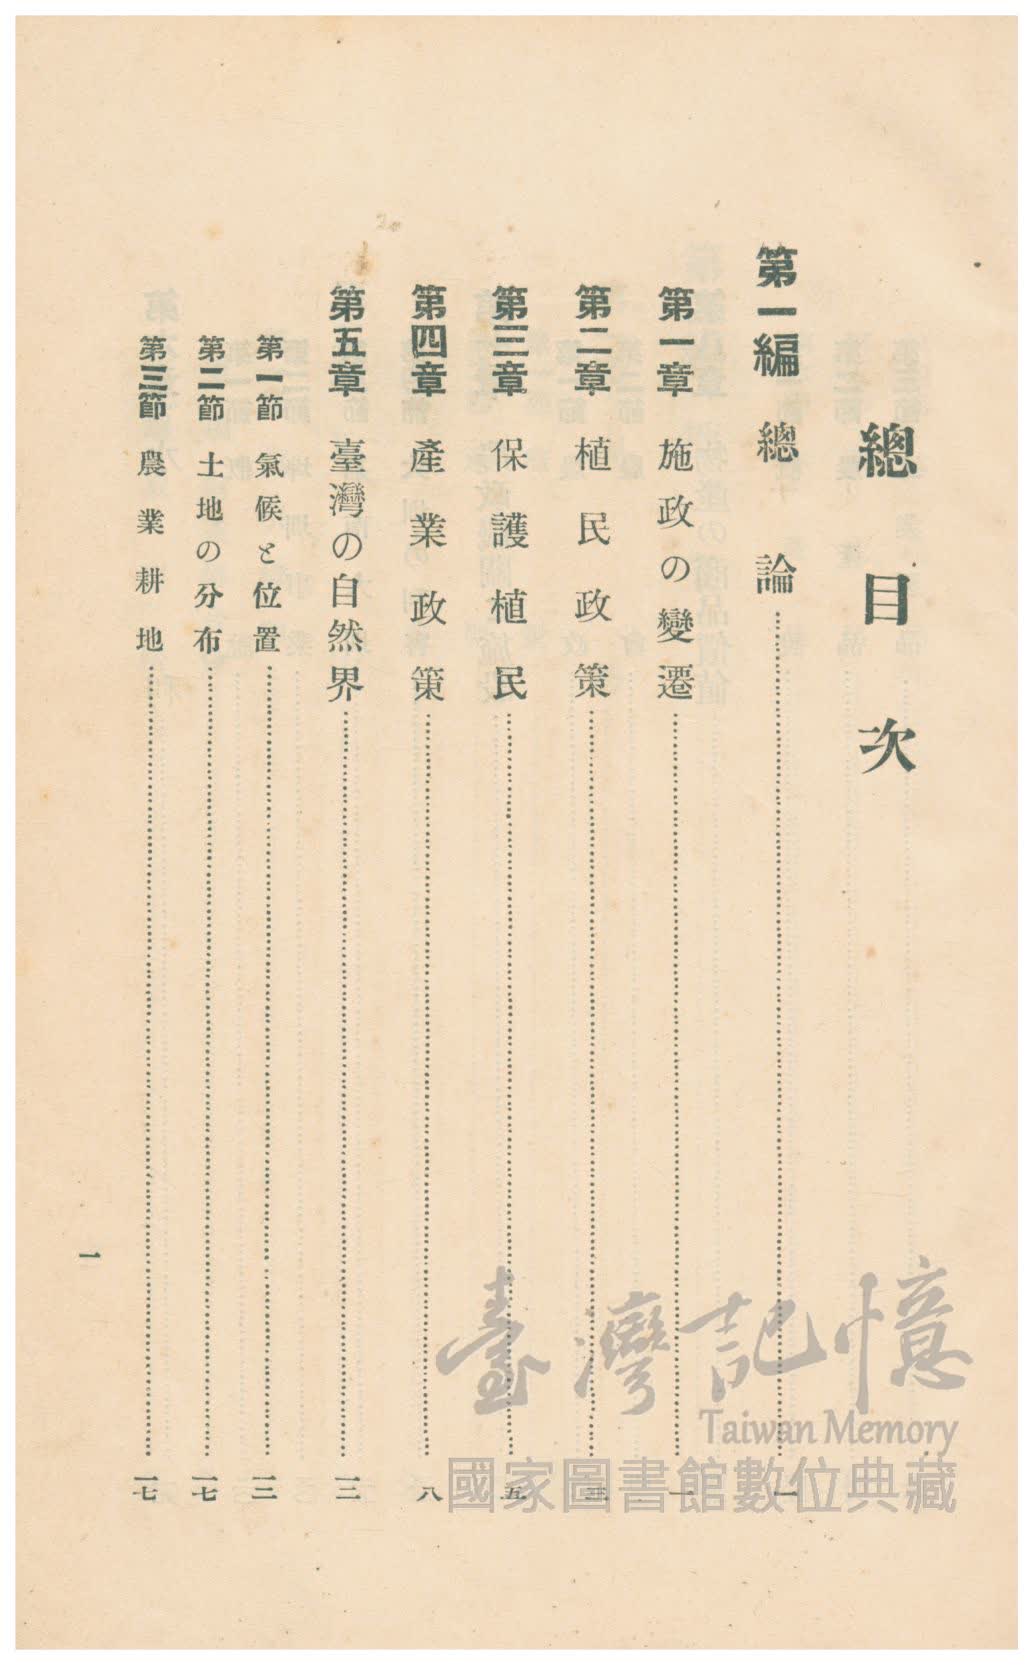 總目次
第一編 總論……一
第一章 施政の變遷……一
第二章 植民政策……三
第三章 保護植民……五
第四章 產業政策……八
第五章 臺灣の自然界……一二
第一節 氣候と位置……一二
第二節 土地の分布……一七
第三節 農業耕地……一七
一
臺灣記憶
Taiwan Memory
國家圖書館數位典藏